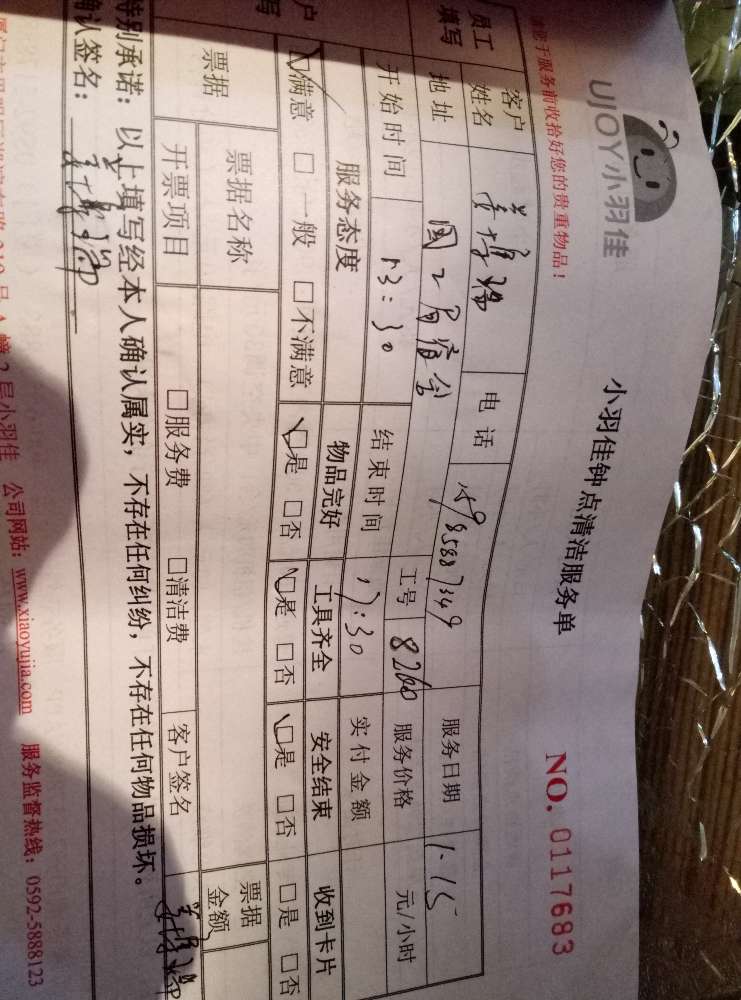 UJOY小羽佳
小羽佳钟点清洁服务单
NO. 0117683
于服务前收拾好您的贵重物品！
员工填写
客户姓名
电话
服务日期 1.15
地址
工号 8260
服务价格 元/小时
开始时间 13:30
结束时间 17:30
实付金额
服务态度 物品完好 工具齐全 安全结束 收到卡片
满意 □一般 □不满意 是 □否 是 □否 是 □否 □是 □否
票据 票据名称 票据金额
开票项目 □服务费 □清洁费 客户签名
特别承诺：以上填写经本人确认属实，不存在任何纠纷，不存在任何物品损坏。
确认签名：
2层小羽佳 公司网站：www.xiaoyujia.com 服务监督热线：0592-5888123